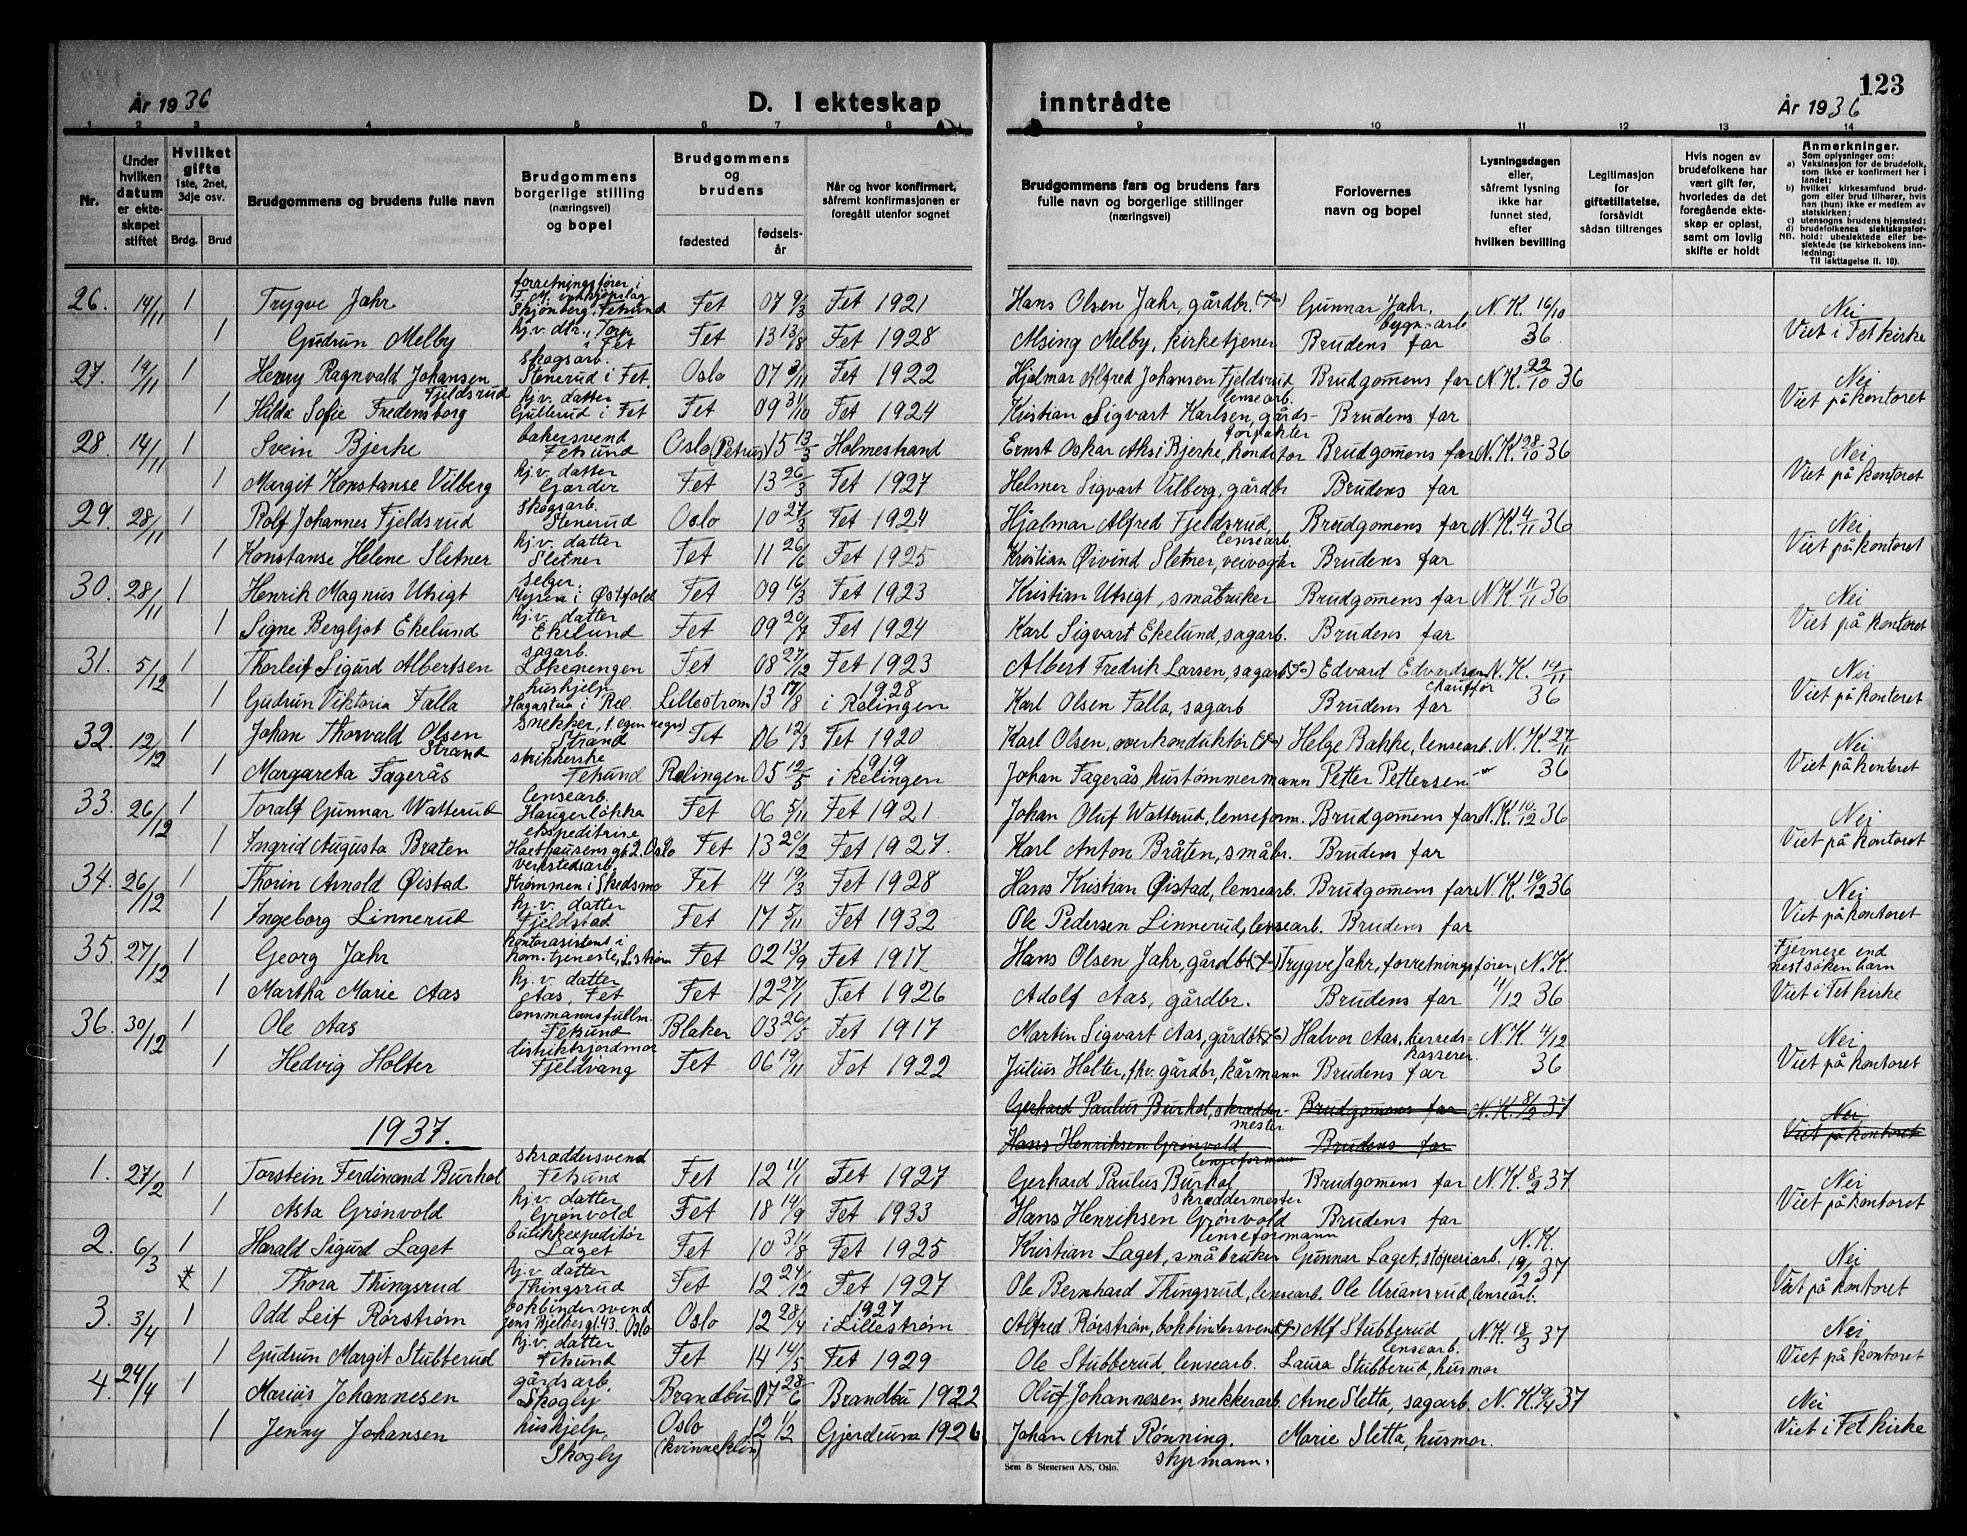 År 1936
D. I ekteskap
inntrådte
123
År 1936
1 2 3 4 5 6 7 8 9 10 11 12 13 14
Nr.
Under hvilken datum er ekteskapet stiftet
Hvilket gifte 1ste, 2net, 3dje osv.
Brdg. Brud
Brudgommens og brudens fulle navn
Brudgommens borgerlige stilling (næringsvei) og bopel
Brudgommens og brudens
fødested fødselsår
Når og hvor konfirmert, såfremt konfirmasjonen er foregått utenfor sognet
Brudgommens fars og brudens fars fulle navn og borgerlige stillinger (næringsvei)
Forlovernes navn og bopel
Lysningsdagen eller, såfremt lysning ikke har funnet sted, efter hvilken bevilling
Legitimasjon for giftetillatelse, forsåvidt sådan tiltrenges
Hvis nogen av brudefolkene har vært gift før, hvorledes da det foregående ekteskap er opløst, samt om lovlig skifte er holdt
Anmerkninger.
Som oplysninger om:
a) Vaksinasjon for de brudefolk, som ikke er konfirmert her i landet;
b) hvilket kirkesamfund brudgom eller brud tilhører, hvis han (hun) ikke er medlem av statskirken;
c) utensogns brudens hjemsted;
d) brudefolkenes slektskapsforhold: ubeslektede eller beslektede (se kirkebokens innledning:
NB.
Til iakttagelse II. 10).
26. 14/11 1 Trygve Jahr forretningsfører i F. M. innkjøpslag Skjønberg, Fetsund Fet 07 9/3 Fet 1921 Hans Olsen Jahr, gårdbr. Gunnar Jahr, bygn. arb. N. K. 16/10 36 Nei
1 Gudrun Melby hj.v. dtr., Torp i Fet Fet 13 13/8 Fet 1928 Melby, kirketjener Brudens far Viet i Fet kirke
27. 14/11 1 Henry Ragnvald Johansen Fjeldsrud skogsarb. Stenerud i Fet. Oslo 07 3/11 Fet 1922 Hjalmar Alfred Johansen Fjeldsrud lensearb. Brudgomens far N. K. 22/10 36 Nei
1 Hilda Sofie Fredensborg hj.v. datter Gullerud i Fet Fet 09 31/10 Fet 1924 Kristian Sigvart Karlsen, gårdsforpakter Brudens far Viet på kontoret
28. 14/11 1 Svein Bjerke bakersvend Fetsund Oslo (Petrus) 15 13/3 Holmestrand Ernst Oskar Bjerke, konditor Brudgomens far N. K. 28/10 36 Nei
1 Margit Konstanse Vilberg hj.v. datter Garder Fet 13 26/3 Fet 1927 Helmer Sigvart Vilberg, gårdbr Brudens far Viet på kontoret
29. 28/11 1 Rolf Johannes Fjeldsrud Skogsarb. Stenerud Oslo 10 27/3 Fet 1924 Hjalmar Alfred Fjeldsrud, lensearb. Brudgomens far N. K. 4/11 36 Nei
1 Konstanse Helene Sletner hj.v. datter Sletner Fet 11 26/6 Fet 1925 Kristian Øivind Sletner, veivogter Brudens far Viet på kontoret
30. 28/11 1 Henrik Magnus Utsigt selger Mysen i Østfold Fet 09 16/3 Fet 1923 Kristian Utsigt, småbruker Brudgomens far N. K. 11/11 36 Nei
1 Signe Bergljot Ekelund hj.v. datter Ekelund Fet 09 24/7 Fet 1924 Karl Sigvart Ekelund, sagarb. Brudens far Viet på kontoret
31. 5/12 1 Thorleif Sigurd Albertsen sagarb. Løkegengen Fet 08 27/12 Fet 1923 Albert Fredrik Larsen, sagarb. Edvard Edvardsen chauffør N. K. 14/11 36 Nei
1 Gudrun Viktoria Falla hushjelp Hagastua i Ræl. Lillestrøm 13 17/8 1928 i Rælingen Karl Olsen Falla, sagarb Brudens far Viet på kontoret
32. 12/12 1 Johan Thorvald Olsen Strand snekker, f. egen regn) Strand Fet 06 12/3 Fet 1920 Karl Olsen, overkonduktør Helge Bakke, lensearb. N. K. 27/11 36 Nei
1 Margareta Fagerås strikkerske Fetsund Rælingen 05 12/5 1919 i Rælingen Johan Fagerås, hustømmermann Petter Pettersen Viet på kontoret
33. 26/12 1 Toralf Gunnar Watterud lensearb. Haugerløkka Fet 06 5/11 Fet 1921. Johan Oluf Watterud, lenseform. Brudgomens far N. K. 10/12 36 Nei
1 Ingrid Augusta Bråten ekspeditrise Harthausensgt. 2. Oslo Fet 13 20/2 Fet 1927. Karl Anton Bråten, småbr. Brudens far Viet på kontoret
34. 26/12 1 Thorin Arnold Øistad verkstedsarb. Strømmen i Skedsmo Fet 14 19/3 Fet 1928 Hans Kristian Øistad, lensearb. Brudgomens far N. K. 10/12 36 Nei
1 Ingeborg Linnerud hj.v. datter Fjeldstad Fet 17 5/11 Fet 1932 Ole Pedersen Linnerud, lensearb. Brudens far Viet på kontoret
35. 27/12 1 Georg Jahr kontorasistent i kom. tjeneste, L.strøm Fet 02 13/9 Fet 1917 Hans Olsen Jahr, gårdbr. Trygve Jahr, forretningsfører, N. K. 4/12 36 Fjernere end nestsøkenbarn
1 Martha Marie Aas hj.v. datter Aas, Fet Fet 12 27/1 Fet 1926 Adolf Aas, gårdbr. Brudens far Viet i Fet kirke
36. 30/12 1 Ole Aas lensmannsfullm. Fetsund Blaker 03 26/5 Fet 1917 Martin Sigvart Aas, gårdbr. Halvor Aas, herredskasserer N. K. 4/12 36 Nei
1 Hedvig Holter distriktsjordmor Fjeldvang Fet 06 19/11 Fet 1922 Julius Holter, fhv. gårdbr, kårmann Brudens far Viet på kontoret
Gerhard Paulus Burhol, skræddermester Brudgomens far N. K. 8/2 37 Nei
Hans Henriksen Grønvold lenseformann Brudens far Viet på kontoret
1937.
1. 27/2 1 Torstein Ferdinand Burhol skræddersvend Fetsund Fet 12 11/1 Fet 1927 Gerhard Paulus Burhol skræddermester Brudgomens far N. K. 8/2 37 Nei
1 Asta Grønvold hj.v. datter Grønvold Fet 18 14/9 Fet 1933 Hans Henriksen Grønvold lenseformann Brudens far Viet på kontoret
2. 6/3 1 Harald Sigurd Laget butikkexpeditør Laget Fet 10 31/8 Fet 1925 Kristian Laget, småbruker Gunnar Laget, støperiarb. N. K. 19/2 37 Nei
1 Thora Thingsrud hj.v. datter Thingsrud Fet 12 24/12 Fet 1927 Ole Bernhard Thingsrud, lensearb. Ole Uriansrud, lensearb. Viet på kontoret
3. 3/4 1 Odd Leif Rørstrøm bokbindersvend Jens Bjelkesgt. 43. Oslo Oslo 12 28/4 1927 i Lillestrøm Alfred Rørstrøm, bokbindersvend Alf Stubberud lensearb. N. K. 18/3 37 Nei
1 Gudrun Margit Stubberud hj.v. datter Fetsund Fet 14 14/5 Fet 1929 Ole Stubberud lensearb. Laura Stubberud, husmor Viet på kontoret
4. 24/4 1 Marius Johannesen gårdsarb. Skogly Brandbu 07 28/6 Brandbu 1922 Oluf Johannesen, snekkerarb. Arne Sletta, sagarb. N. K. 9/4 37 Nei
1 Jenny Johansen hushjelp, Skogly Oslo (kvinneklin) 12 1/2 Gjerdrum 1926 Johan Arnt Rønning. styrmann. Marie Sletta, husmor. Viet i Fet kirke
Sem & Stenersen A/S, Oslo.